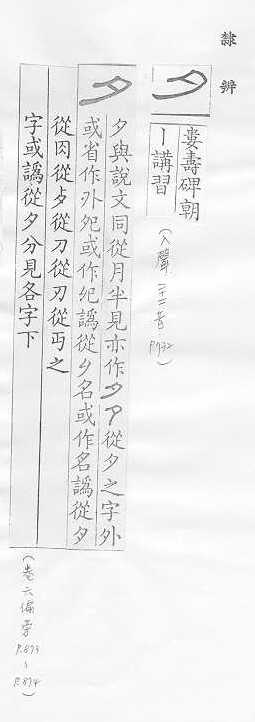 隸辨
夕
婁壽碑朝
丨講習
(入聲 二十二昔 P.732)
夕
夕與說文同從月半見亦作夕从夕之字外
或省作外夗或作夗譌從夕名或作名譌從夕
從囟從歺從刀從刃從丏之
字或譌從夕分見各字下
(卷六偏旁 P.873~P.874)